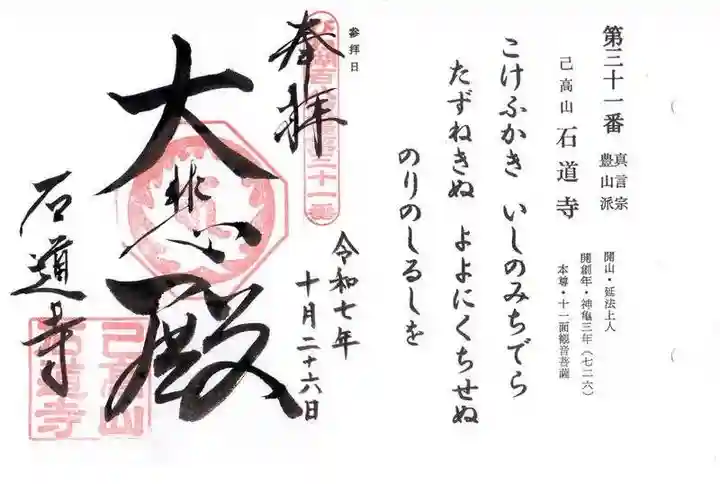 第三十一番
真言宗
豊山派
己高山 石道寺
開山・延法上人
開創年・神亀三年(七二六)
本尊・十一面観音菩薩
こけふかき いしのみちでら
たずねきぬ よよにくちせぬ
のりのしるしを
参拝日
奉拝
令和七年
十月二十六日
大悲殿
石道寺
己高山
石道寺